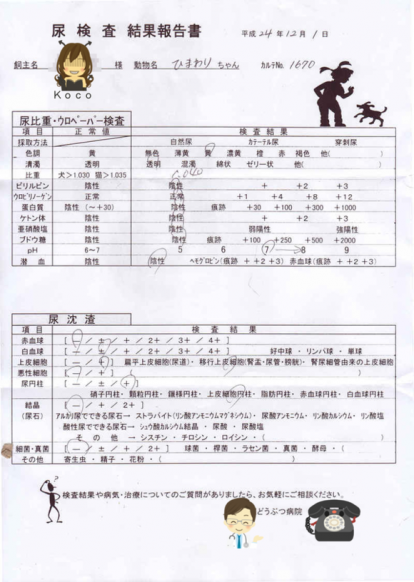 尿 検 査 結果報告書
平成 24 年 12 月 1 日
飼主名 様 動物名 ひまわり ちゃん カルテNo. 1670
Koco
尿比重・ウロペーパー検査
項 目 正 常 値 検 査 結 果
採取方法 自然尿 カテーテル尿 穿刺尿
色調 黄 無色 薄黄 黄 濃黄 橙 赤 褐色 他( )
清濁 透明 透明 混濁 綿状 ゼリー状 他( )
比重 犬>1.030 猫>1.035
ビリルビン 陰性 陰性 + +2 +3
ウロビリノーゲン 正常 正常 +1 +4 +8 +12
蛋白質 陰性 (~+30) 陰性 痕跡 +30 +100 +300 +1000
ケトン体 陰性 陰性 + +2 +3
亜硝酸塩 陰性 陰性 弱陽性 強陽性
ブドウ糖 陰性 陰性 痕跡 +100 +250 +500 +2000
pH 6~7 5 6 7 8 9
潜 血 陰性 陰性 ヘモグロビン(痕跡 + +2 +3) 赤血球(痕跡 + +2 +3)
尿 沈 渣
項 目 検 査 結 果
赤血球 [ - / ± / + / 2+ / 3+ / 4+ ]
白血球 [ - / ± / + / 2+ / 3+ / 4+ ] 好中球 ・ リンパ球 ・ 単球
上皮細胞 [ - / + ] 扁平上皮細胞(尿道) ・ 移行上皮細胞(腎盂・尿管・膀胱) ・ 腎尿細管由来の上皮細胞
悪性細胞 [ - / + ]
尿円柱 [ - / ± / + ]
硝子円柱 ・ 顆粒円柱 ・ 蝋様円柱 ・ 上皮細胞円柱 ・ 脂肪円柱 ・ 赤血球円柱 ・ 白血球円柱
結晶 [ - / + / 2+ ]
(尿石) アルカリ尿でできる尿石→ ストラバイト(リン酸アンモニウムマグネシウム) ・ 尿酸アンモニウム ・ リン酸カルシウム ・ リン酸塩
酸性尿でできる尿石→ シュウ酸カルシウム結晶 ・ 尿酸 ・ 尿酸塩
そ の 他 → シスチン ・ チロシン ・ ロイシン ・ ( )
細菌・真菌 [ - / ± / + / 2+ ] 球菌 ・ 桿菌 ・ ラセン菌 ・ 真菌 ・ 酵母 ・ ( )
その他 寄生虫 ・ 精子 ・ 花粉 ・ ( )
検査結果や病気・治療についてのご質問がありましたら、お気軽にご相談ください。
どうぶつ病院